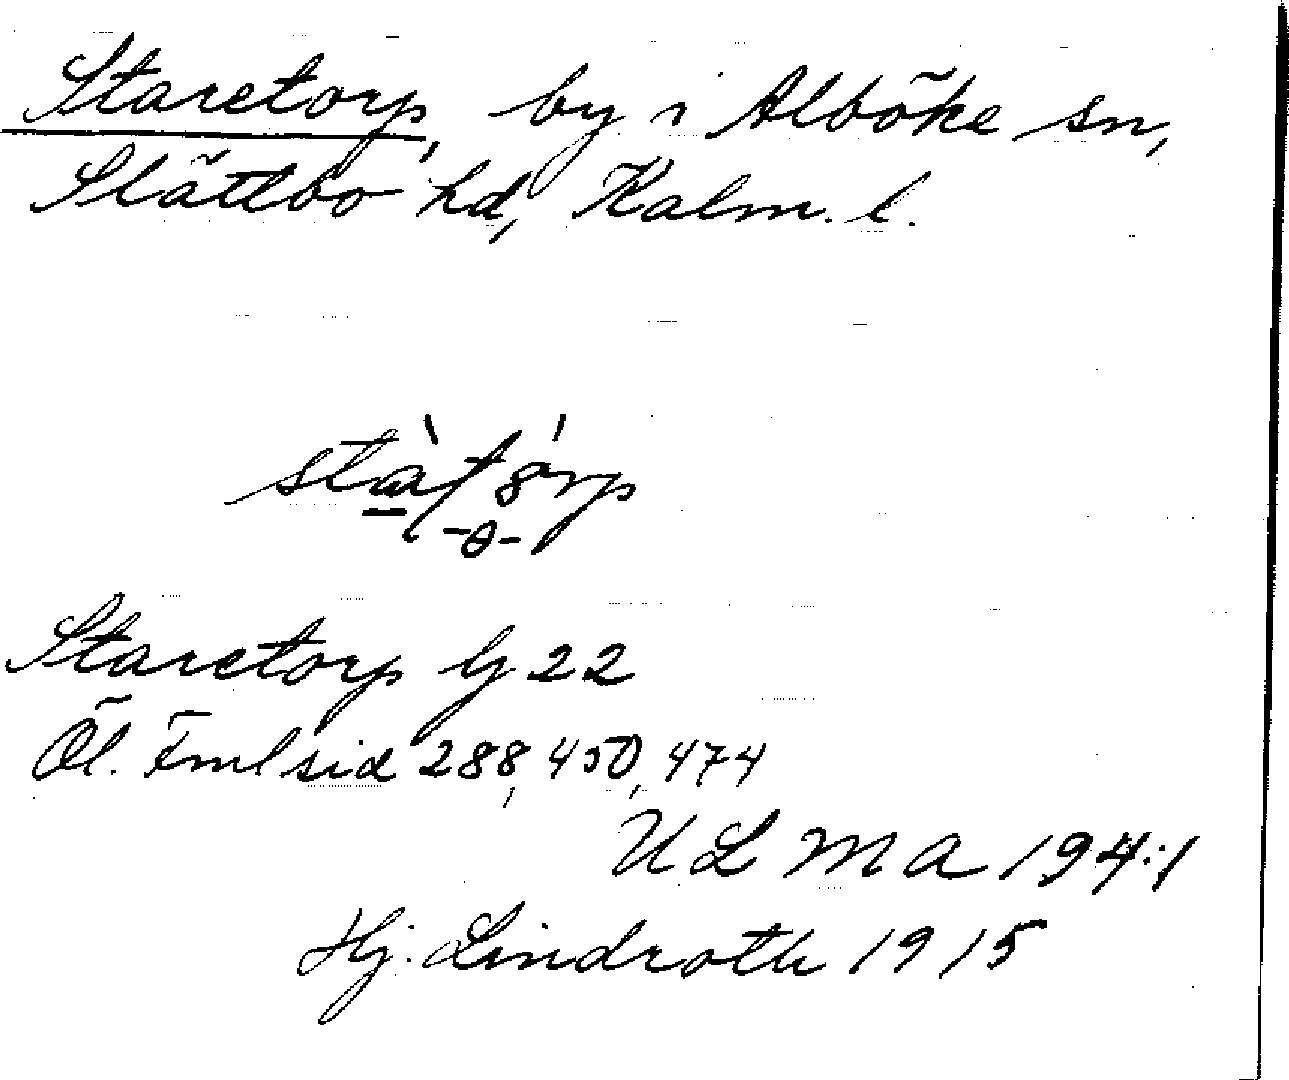 Staretorp, by i Alböke sn,
Slättbo hd, Kalm. l.
Staretorp Gj 22
Öl. Fml sid 288, 450, 474
ULMA 194:1
Hj. Lindroth 1915